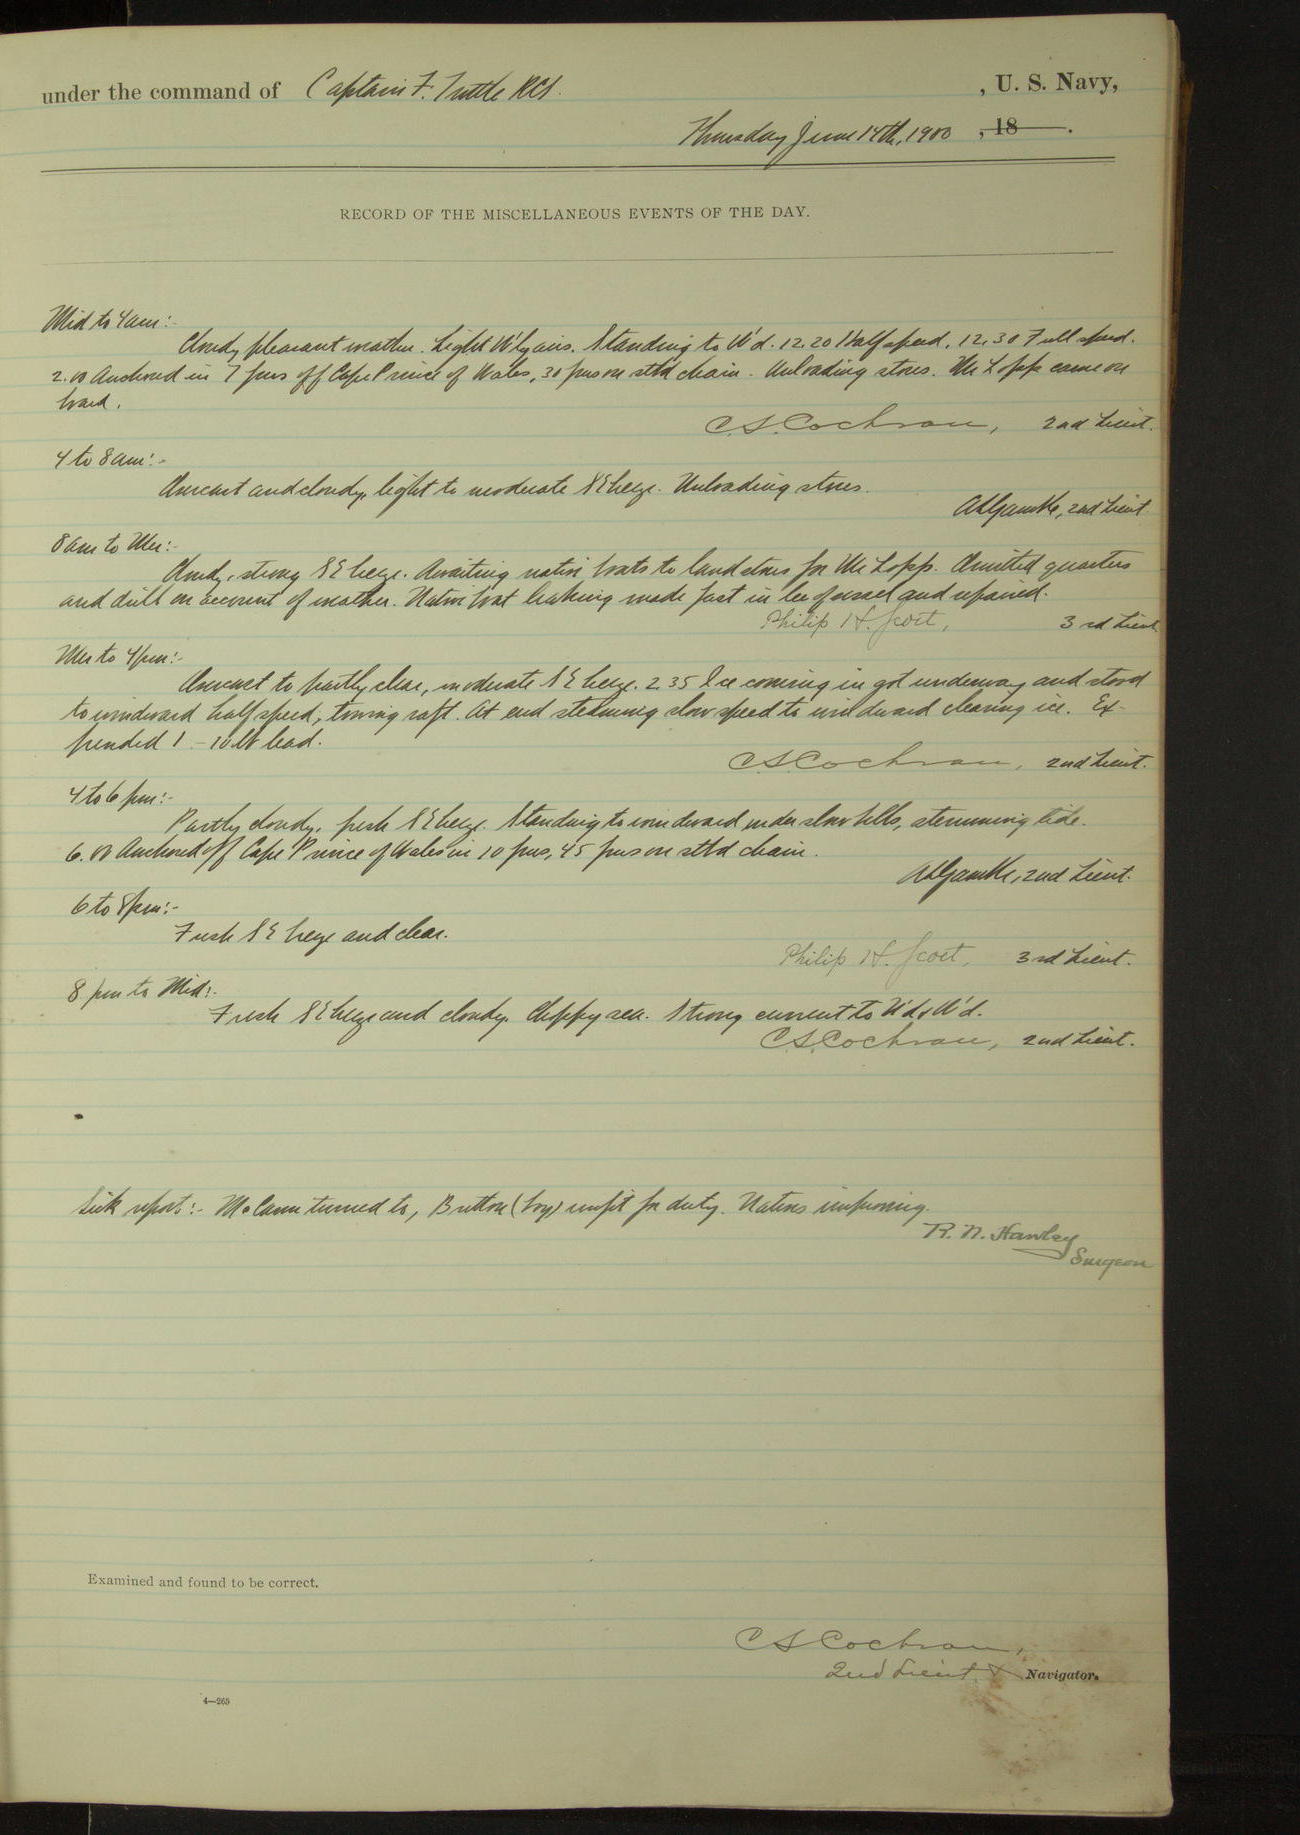 under the command of Captain F. Tuttle RCS. , U. S. Navy,
Thursday June 14th, 1900 , 18 .
RECORD OF THE MISCELLANEOUS EVENTS OF THE DAY.
Mid to 4am:-
Cloudy pleasant weather. Light W'ly airs. Standing to W'd. 12.20 Half speed, 12.30 Full speed.
2.00 Anchored in 7 fms off Cape Prince of Wales, 30 fms on stbd chain. Unloading stores. Mr Lopp came on
board.
C.S. Cochran, 2nd Lieut.
4 to 8am:-
Overcast and cloudy, light to moderate SE breeze. Unloading stores.
2nd Lieut
8am to Mer:-
Cloudy, strong SE breeze. Awaiting native boats to land stores for Mr Lopp. Omitted quarters
and drill on account of weather. Native boat leaking made fast in lee of vessel and repaired.
Philip H. Scott, 3rd Lieut
Mer to 4pm:-
Overcast to partly clear, moderate SE breeze. 2 35 Ice coming in got underway and stood
to windward half speed, towing raft. At end steaming slow speed to windward clearing ice. Ex-
pended 1 - 10 lb lead.
C.S. Cochran, 2nd Lieut.
4 to 6 pm:-
Partly cloudy, fresh SE breeze. Standing to windward under slow bells, stemming tide.
6.00 Anchored off Cape Prince of Wales in 10 fms, 45 fms on stbd chain.
2nd Lieut.
6 to 8pm:-
Fresh SE breeze and clear.
Philip H. Scott, 3rd Lieut.
8 pm to Mid:-
Fresh SE breeze and cloudy. Choppy sea. Strong current to N'd & W'd.
C.S. Cochran, 2nd Lieut.
Sick report:- McCann turned to, Button (boy) unfit for duty. Natives improving.
R. N. Hawley
Surgeon
Examined and found to be correct.
C S Cochran,
2nd Lieut. & Navigator.
4—265